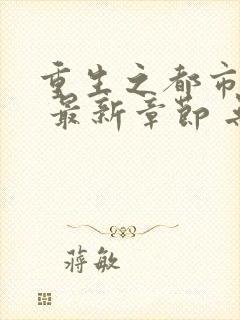 重生之都市
最新章节
蒋敏